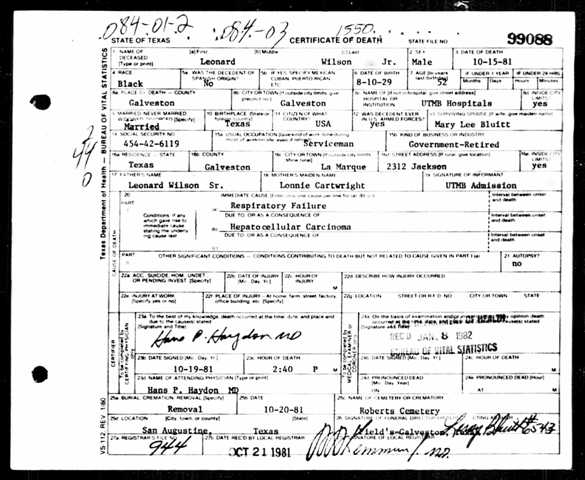 084-01-2 084-03 1550
STATE OF TEXAS CERTIFICATE OF DEATH STATE FILE NO. 99088
1 NAME OF DECEASED (Type or print) (a) First (b) Middle (c) Last 2 SEX 3 DATE OF DEATH
Leonard Wilson Jr. Male 10-15-81
4 RACE 5a WAS THE DECEDENT OF SPANISH ORIGIN? 5b IF YES, SPECIFY MEXICAN, CUBAN, PUERTO RICAN, ETC. 6 DATE OF BIRTH 7 AGE IF UNDER 1 YEAR IF UNDER 24 HRS.
Black No 8-10-29 52 Months Days Hours Minutes
8a PLACE OF DEATH — COUNTY 8b CITY OR TOWN (If outside city limits, give precinct no.) 8c NAME OF HOSPITAL OR INSTITUTION (If not in hospital, give street address) 8d INSIDE CITY LIMITS
Galveston Galveston UTMB Hospitals yes
9 MARRIED, NEVER MARRIED, WIDOWED, DIVORCED (Specify) 10 BIRTHPLACE (State or foreign country) 11 CITIZEN OF WHAT COUNTRY 12 WAS DECEASED EVER IN U.S. ARMED FORCES? 13 SURVIVING SPOUSE (If wife, give maiden name)
Married Texas USA yes Mary Lee Bluitt
14 SOCIAL SECURITY NO. 15a USUAL OCCUPATION 15b KIND OF BUSINESS OR INDUSTRY
454-42-6119 Serviceman Government-Retired
16a RESIDENCE — STATE 16b COUNTY 16c CITY OR TOWN 16d STREET ADDRESS (If rural, give location) 16e INSIDE CITY LIMITS
Texas Galveston La Marque 2312 Jackson yes
17 FATHER'S NAME 18 MOTHER'S MAIDEN NAME 19 SIGNATURE OF INFORMANT
Leonard Wilson Sr. Lonnie Cartwright UTMB Admission
20 PART I IMMEDIATE CAUSE Interval between onset and death
Respiratory Failure
Conditions if any which gave rise to immediate cause stating the underlying cause last
DUE TO OR AS A CONSEQUENCE OF Interval between onset and death
Hepatocellular Carcinoma
DUE TO OR AS A CONSEQUENCE OF Interval between onset and death
PART II OTHER SIGNIFICANT CONDITIONS — CONDITIONS CONTRIBUTING TO DEATH BUT NOT RELATED TO CAUSE GIVEN IN PART I (a) 21 AUTOPSY?
no
22a ACC. SUICIDE, HOM. UNDET. OR PENDING INVEST. (Specify) 22b DATE OF INJURY (Mo. Day Yr.) 22c HOUR OF INJURY 22d DESCRIBE HOW INJURY OCCURRED
22e INJURY AT WORK (Specify yes or no) 22f PLACE OF INJURY - At home, farm, street, factory, office building, etc. (Specify) 22g LOCATION STREET OR R.F.D. NO. CITY OR TOWN STATE
23a To the best of my knowledge, death occurred at the time, date, and place and due to the cause(s) stated (Signature and Title)
Hans P. Haydon MD
24a On the basis of examination and/or
REC'D JAN. 8 1982
BUREAU OF VITAL STATISTICS
23b DATE SIGNED (Mo. Day Yr.) 23c HOUR OF DEATH 24b DATE SIGNED (Mo. Day Yr.) 24c HOUR OF DEATH
10-19-81 2:40 P M
23d NAME OF ATTENDING PHYSICIAN (Type or print) 24d PRONOUNCED DEAD (Mo. Day Year) 24e PRONOUNCED DEAD (Hour)
Hans P. Haydon MD ON AT M
25a BURIAL, CREMATION, REMOVAL (Specify) 25b DATE 25c NAME OF CEMETERY OR CREMATORY
Removal 10-20-81 Roberts Cemetery
25d LOCATION (City, town, or county) (State)
San Augustine, Texas Field's-Galveston, #6543
27a REGISTRAR'S FILE NO. 27b DATE REC'D BY LOCAL REGISTRAR SIGNATURE OF LOCAL REGISTRAR
944 OCT 21 1981
Texas Department of Health — BUREAU OF VITAL STATISTICS
CAUSE OF DEATH
CERTIFIER
VS 112 REV 1/80